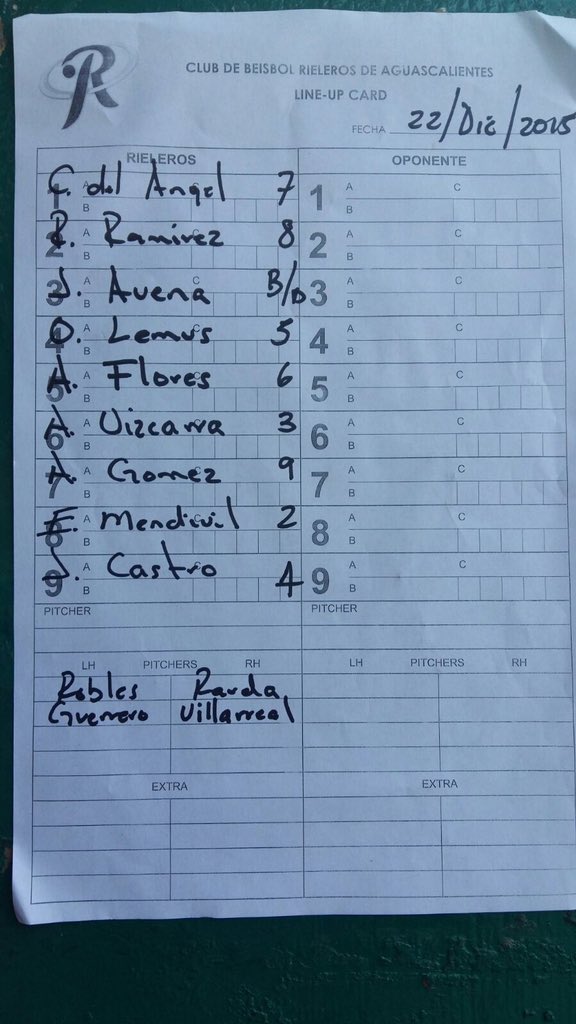 R
CLUB DE BEISBOL RIELEROS DE AGUASCALIENTES
LINE-UP CARD
FECHA 22/Dic/2015
RIELEROS OPONENTE
1 A C. del Angel 7 1 A C
B B
2 A R. Ramirez 8 2 A C
B B
3 A C J. Avena B/D 3 A C
B B
4 A C O. Lemus 5 4 A C
B B
5 A C A. Flores 6 5 A C
B B
6 A C A. Vizcarra 3 6 A C
B B
7 A C A. Gomez 9 7 A C
B B
8 A C E. Mendivil 2 8 A C
B B
9 A C J. Castro 4 9 A C
B B
PITCHER PITCHER
LH PITCHERS RH LH PITCHERS RH
Robles Rauda
Guerrero Villarreal
EXTRA EXTRA